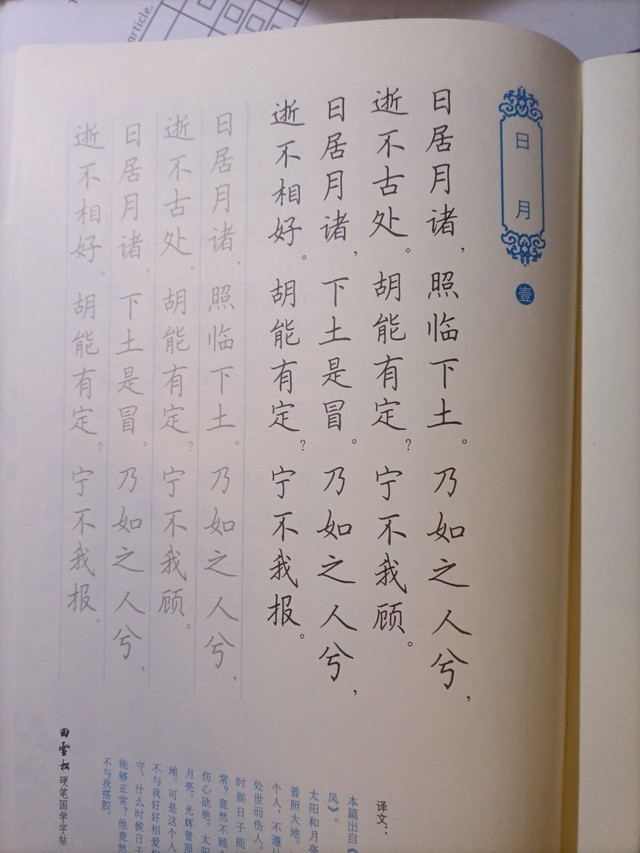 article.
日月
壹
日居月诸，照临下土。乃如之人兮，
逝不古处。胡能有定？宁不我顾。
日居月诸，下土是冒。乃如之人兮，
逝不相好。胡能有定？宁不我报。
日居月诸，照临下土。乃如之人兮，
逝不古处。胡能有定？宁不我顾。
日居月诸，下土是冒。乃如之人兮，
逝不相好。胡能有定？宁不我报。
译文：
本篇出自《
风》。
太阳和月亮
普照大地。
个人，不遵从
处世而伤人。
时候日子能
常？竟然不顾
伤心欲绝。太阳
月亮，光辉普照
地。可是这个人
不与我好好相爱相
守。什么时候日子
能够正常？他竟然
不与我搭腔。
田雪松 硬笔国学字帖